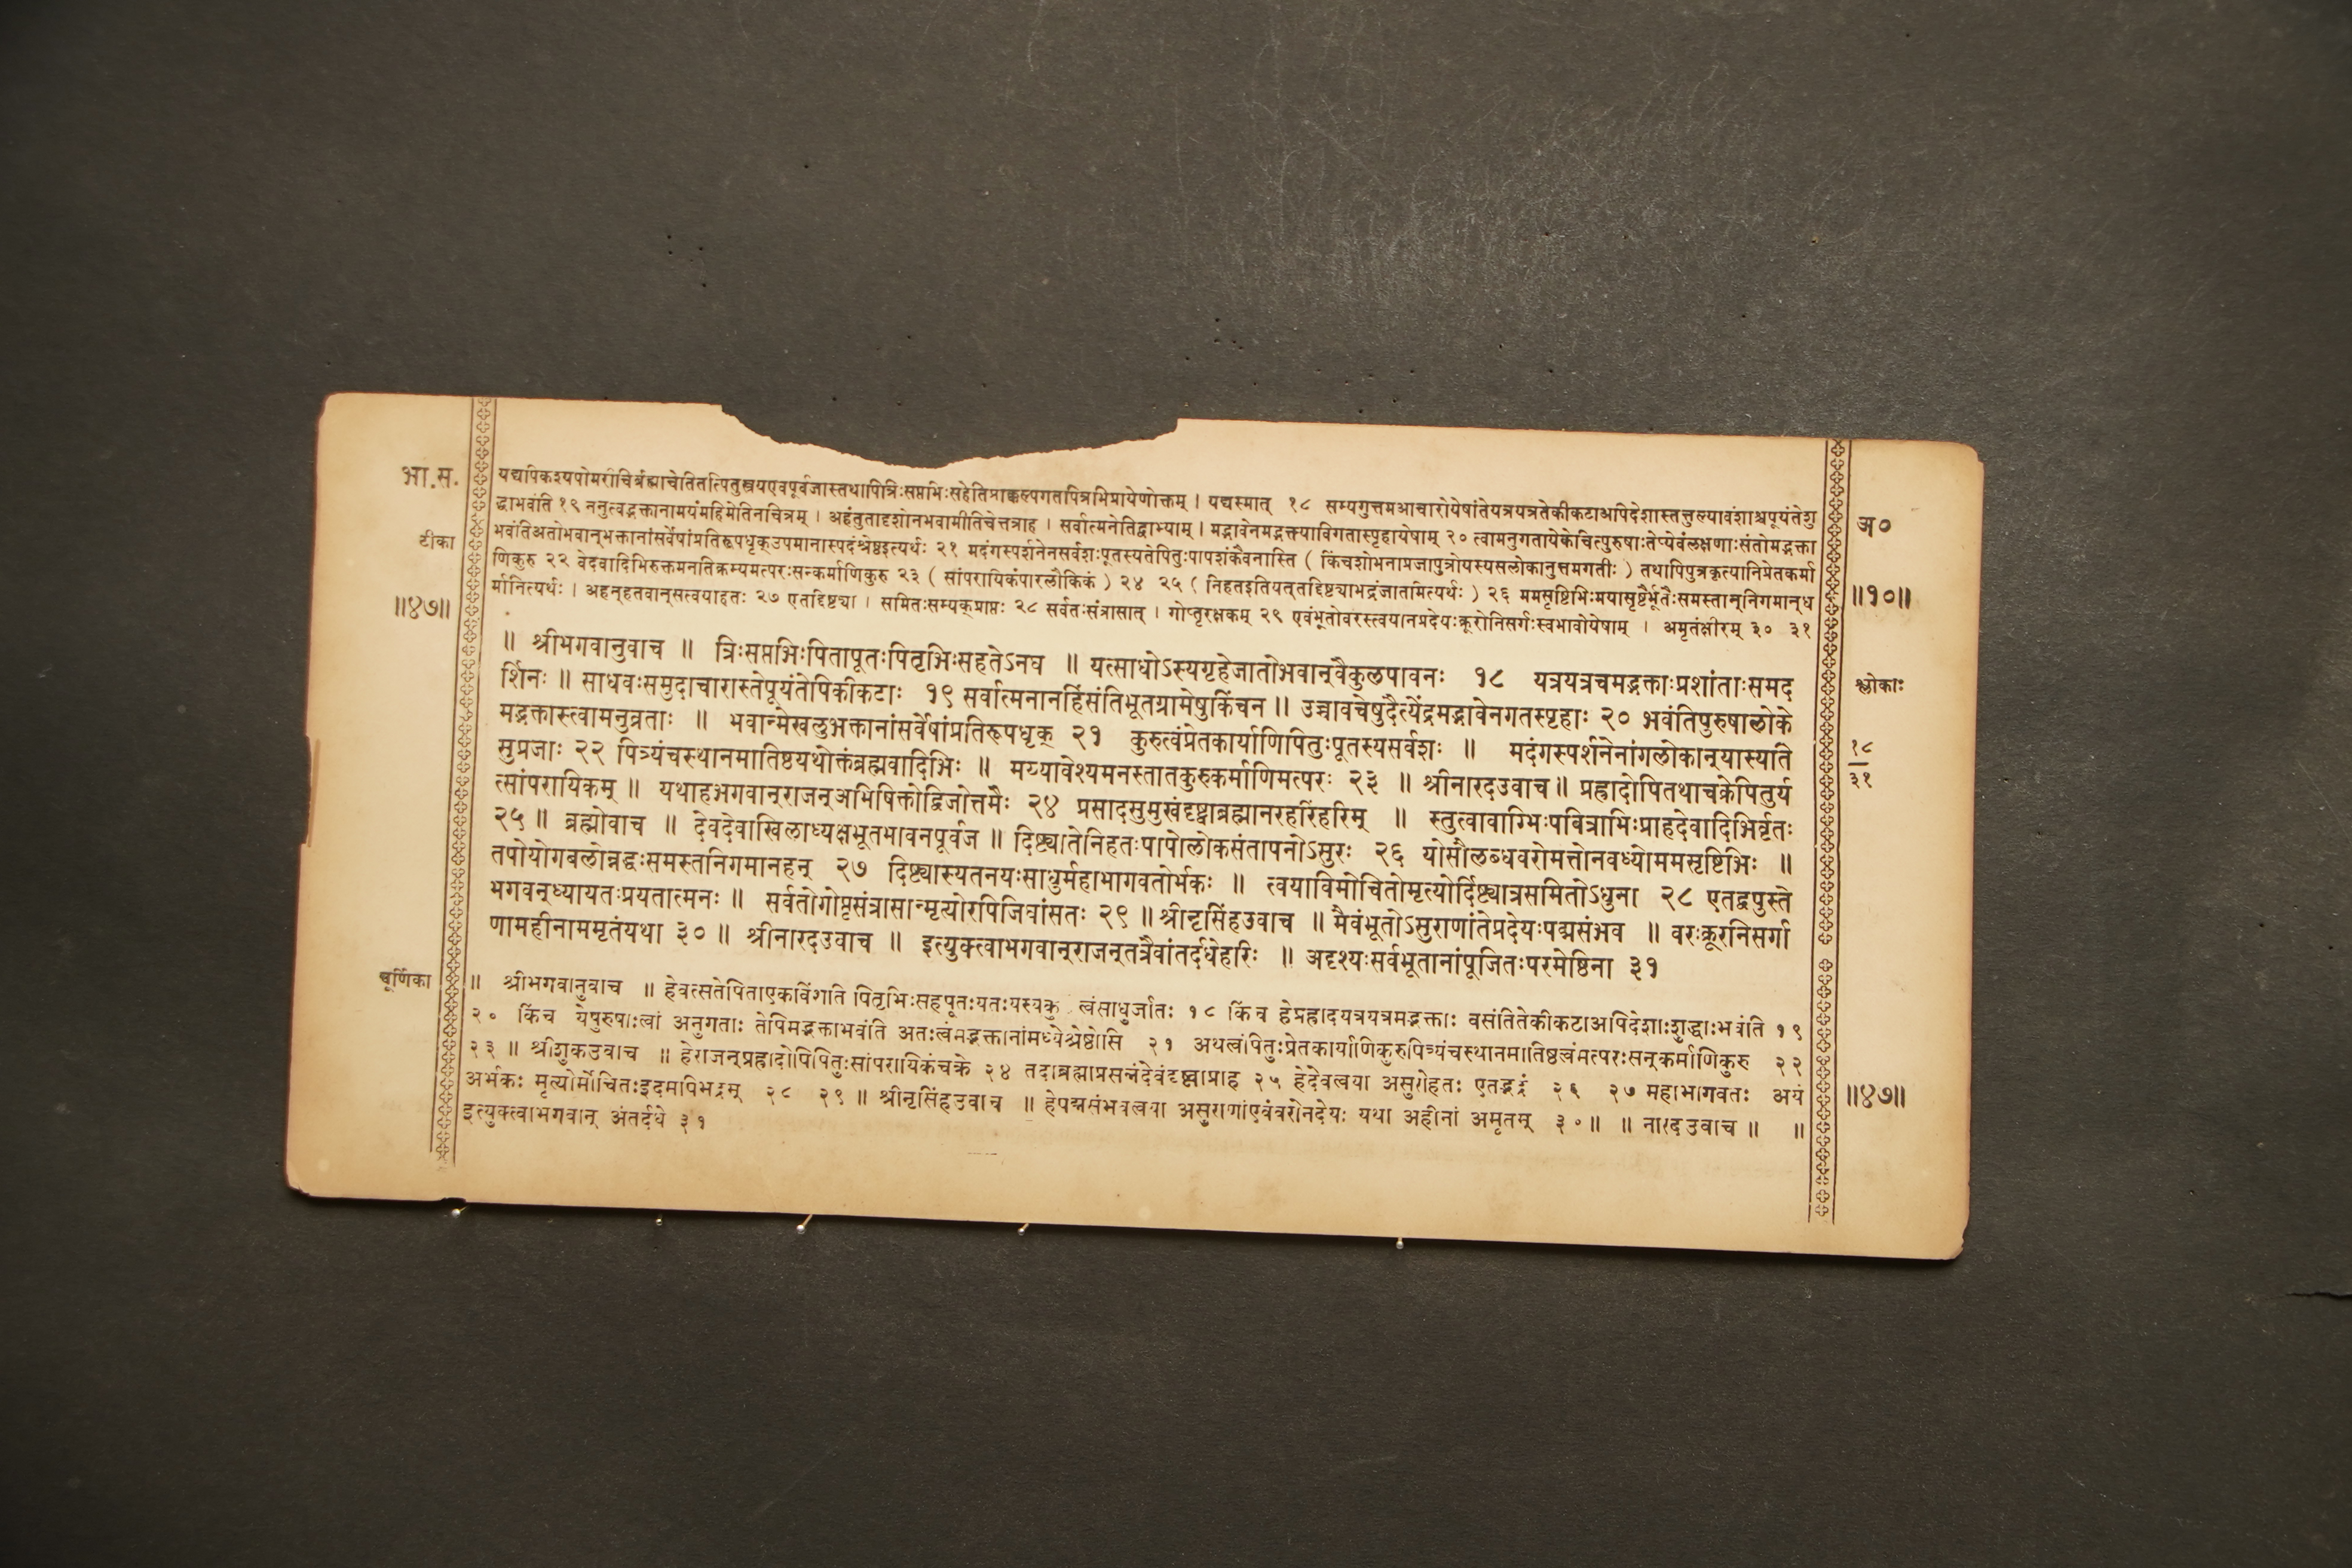 भा.स.
टीका
॥४७॥
यद्यपिकश्यपोमरीचिर्ब्रह्माचेतितत्पितुस्त्रयएवपूर्वजास्तथापित्रिःसप्तभिःसहेतिप्राक्कल्पगतपित्रभिप्रायेणोक्तम् । यद्यस्मात् १८ सम्यगुत्तमआचारोयेषांतेयत्रयत्रतेकीकटाअपिदेशास्तत्तुल्यावंशाश्चपूयंतेशु
द्धाभवंति १९ ननुत्वद्भक्तानामयंमहिमेतिनचित्रम् । अहंतुतादृशोनभवामीतिचेत्तत्राह । सर्वात्मनेतिद्वाभ्याम् । मद्भावेनमद्भक्त्याविगतास्पृहायेषाम् २० त्वामनुगतायेकेचित्पुरुषाःतेप्येवंलक्षणाःसंतोमद्भक्ता
भवंतिअतोभवान्भक्तानांसर्वेषांप्रतिरूपधृक्उपमानास्पदंश्रेष्ठइत्यर्थः २१ मदंगस्पर्शनेनसर्वशःपूतस्यतेपितुःपापशंकैवनास्ति ( किंचशोभनाप्रजापुत्रोयस्यसलोकानुत्तमगतीः ) तथापिपुत्रकृत्यानिप्रेतकर्मा
णिकुरु २२ वेदवादिभिरुक्तमनतिक्रम्यमत्परःसन्कर्माणिकुरु २३ ( सांपरायिकंपारलौकिकं ) २४ २५ ( निहतइतियत्तद्दिष्ट्याभद्रंजातमित्यर्थः ) २६ ममसृष्टिभिःमयासृष्टैर्भूतैःसमस्तान्निगमान्ध
र्मानित्यर्थः । अहन्हतवान्सत्वयाहतः २७ एतद्दिष्ट्या । समितःसम्यक्प्राप्तः २८ सर्वतःसंत्रासात् । गोप्तृरक्षकम् २९ एवंभूतोवरस्त्वयानप्रदेयःक्रूरोनिसर्गःस्वभावोयेषाम् । अमृतंक्षीरम् ३० ३१
॥ श्रीभगवानुवाच ॥ त्रिःसप्तभिःपितापूतःपितृभिःसहतेऽनघ ॥ यत्साधोऽस्यगृहेजातोभवान्वैकुलपावनः १८ यत्रयत्रचमद्भक्ताःप्रशांताःसमद
र्शिनः ॥ साधवःसमुदाचारास्तेपूयंतेपिकीकटाः १९ सर्वात्मनानहिंसंतिभूतग्रामेषुकिंचन ॥ उच्चावचेषुदैत्येंद्रमद्भावेनगतस्पृहाः २० भवंतिपुरुषालोके
मद्भक्तास्त्वामनुव्रताः ॥ भवान्मेखलुभक्तानांसर्वेषांप्रतिरूपधृक् २१ कुरुत्वंप्रेतकार्याणिपितुःपूतस्यसर्वशः ॥ मदंगस्पर्शनेनांगलोकान्यास्यति
सुप्रजाः २२ पित्र्यंचस्थानमातिष्ठयथोक्तंब्रह्मवादिभिः ॥ मय्यावेश्यमनस्तातकुरुकर्माणिमत्परः २३ ॥ श्रीनारदउवाच ॥ प्रह्रादोपितथाचक्रेपितुर्य
त्सांपरायिकम् ॥ यथाहभगवान्राजन्अभिषिक्तोद्विजोत्तमैः २४ प्रसादसुमुखंदृष्ट्वाब्रह्मानरहरिंहरिम् ॥ स्तुत्वावाग्भिःपवित्राभिःप्राहदेवादिभिर्वृतः
२५ ॥ ब्रह्मोवाच ॥ देवदेवाखिलाध्यक्षभूतभावनपूर्वज ॥ दिष्ट्यातेनिहतःपापोलोकसंतापनोऽसुरः २६ योसौलब्धवरोमत्तोनवध्योममसृष्टिभिः ॥
तपोयोगबलोन्नद्धःसमस्तनिगमानहन् २७ दिष्ट्यास्यतनयःसाधुर्महाभागवतोर्भकः ॥ त्वयाविमोचितोमृत्योर्दिष्ट्यात्रसमितोऽधुना २८ एतद्वपुस्ते
भगवन्ध्यायतःप्रयतात्मनः ॥ सर्वतोगोप्तृसंत्रासान्मृत्योरपिजिघांसतः २९ ॥ श्रीनृसिंहउवाच ॥ मैवंभूतोऽसुराणांतेप्रदेयःपद्मसंभव ॥ वरःक्रूरनिसर्गा
णामहीनाममृतंयथा ३० ॥ श्रीनारदउवाच ॥ इत्युक्त्वाभगवान्राजन्तत्रैवांतर्दधेहरिः ॥ अदृश्यःसर्वभूतानांपूजितःपरमेष्ठिना ३१
चूर्णिका
॥ श्रीभगवानुवाच ॥ हेवत्सतेपिताएकविंशति पितृभिःसहपूतःयतःयस्यकु त्वंसाधुर्जातः १८ किंच हेप्रह्रादयत्रयत्रमद्भक्ताः वसंतितेकीकटाअपिदेशाःशुद्धाःभवंति १९
२० किंच येपुरुषाःत्वां अनुगताः तेपिमद्भक्ताभवंति अतःत्वंमद्भक्तानांमध्येश्रेष्ठोसि २१ अथत्वंपितुःप्रेतकार्याणिकुरुपित्र्यंचस्थानमातिष्ठत्वंमत्परःसन्कर्माणिकुरु २२
२३ ॥ श्रीशुकउवाच ॥ हेराजन्प्रह्रादोपिपितुःसांपरायिकंचक्रे २४ तदाब्रह्माप्रसन्नंदेवंदृष्ट्वाप्राह २५ हेदेवत्वया असुरोहतः एतद्भद्रं २६ २७ महाभागवतः अयं
अर्भकः मृत्योर्मोचितःइदमपिभद्रम् २८ २९ ॥ श्रीनृसिंहउवाच ॥ हेपद्मसंभवत्वया असुराणांएवंवरोनदेयः यथा अहीनां अमृतम् ३० ॥ ॥ नारदउवाच ॥ ॥
इत्युक्त्वाभगवान् अंतर्दधे ३१
अ०
॥१०॥
श्लोकाः
१८
३१
॥४७॥